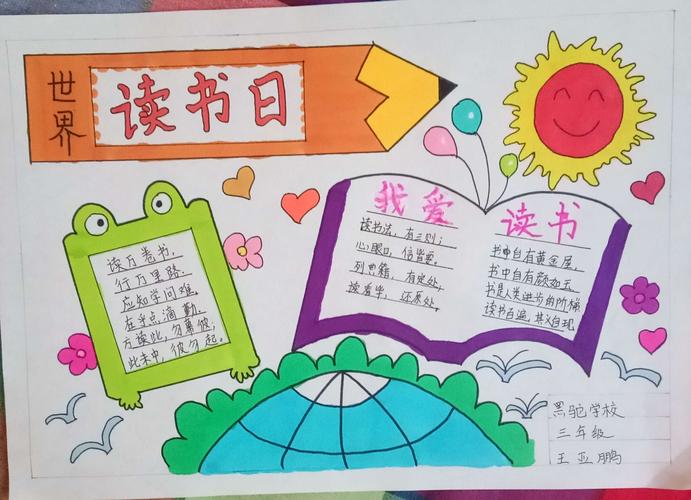 世界
读书日
读万卷书，
行万里路．
应知学问难，
在乎点滴勤．
方读此，勿慕彼；
此未中，彼勿起。
我爱
读书法，有三到；
心眼口，信皆要。
列典籍，有定处，
读看毕，还原处。
读书
书中自有黄金屋，
书中自有颜如玉
书是人类进步的阶梯
读书百遍，其义自现
黑驼学校
三年级
王亚鹏